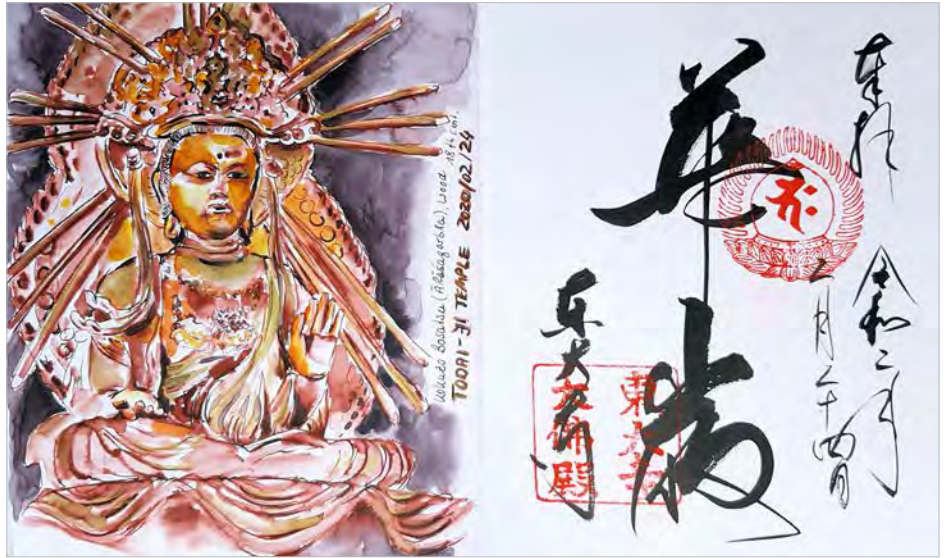 Kokuzo Bosatsu (Ākāśagarbha), wood 18th cent.
TODAI-JI TEMPLE 2020/02/24
奉拝
令和二年
二月二十四日
華厳
東大寺
東大寺
大佛殿